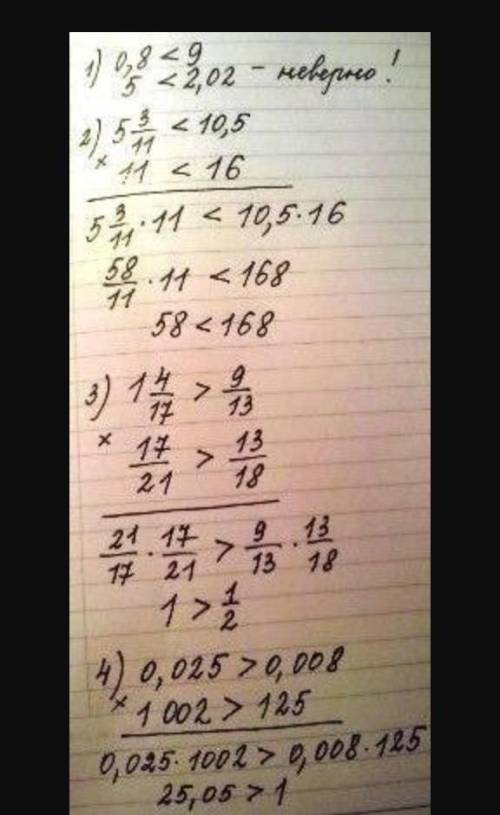 1) 0,8 < 9
5 < 2,02 – неверно!
2) 5 3/11 < 10,5
× 11 < 16
5 3/11 · 11 < 10,5 · 16
58/11 · 11 < 168
58 < 168
3) 1 4/17 > 9/13
× 17/21 > 13/18
21/17 · 17/21 > 9/13 · 13/18
1 > 1/2
4) 0,025 > 0,008
× 1 002 > 125
0,025 · 1002 > 0,008 · 125
25,05 > 1